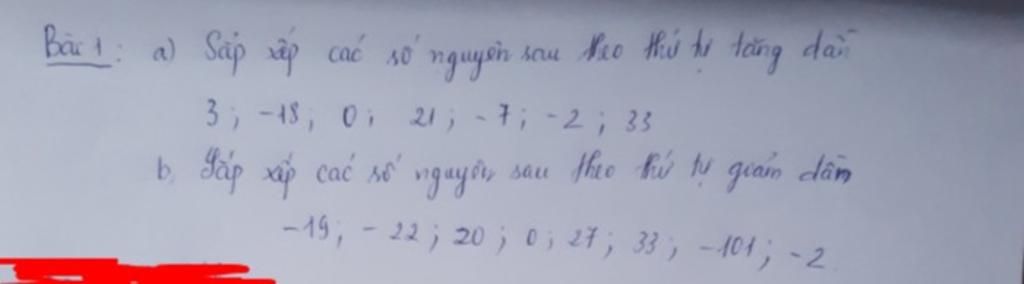 Bài 1: a) Sắp xếp các số nguyên sau theo thứ tự tăng dần
3; -18; 0; 21; -7; -2; 33
b, Sắp xếp các số nguyên sau theo thứ tự giảm dần
-19; -22; 20; 0; 27; 33; -101; -2